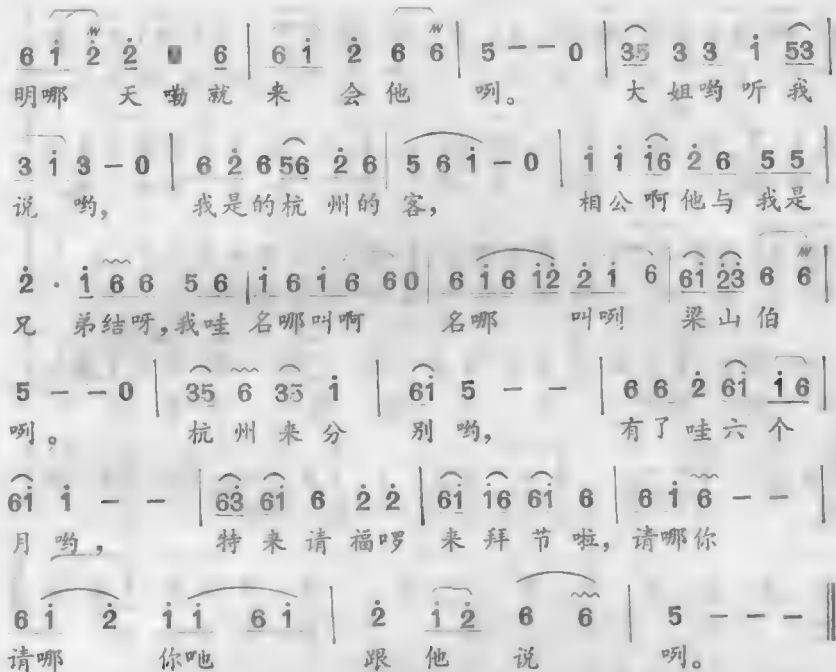 6 i̇ 2̇ 2̇ 6 | 6 i̇ 2̇ 6 6 | 5 - - 0 | 35 3 3 i̇ 53 |
明哪 天嘞就 来 会他 咧。 大姐哟听我
3 i̇ 3 - 0 | 6 2̇ 6 56 2̇ 6 | 5 6 i̇ - 0 | i̇ i̇ i̇6 2̇ 6 5 5 |
说 哟, 我是的杭 州的 客, 相公啊他与 我是
2̇ · i̇ 6 6 5 6 | i̇ 6 i̇ 6 6 0 | 6 i̇ 6 i̇2̇ 2̇ i̇ 6 | 6i̇ 2̇3̇ 6 6 |
兄 弟结呀,我哇 名哪叫啊 名哪 叫咧 梁山伯
5 - - 0 | 35 6 35 i̇ | 6i̇ 5 - - | 6 6 2̇ 6i̇ i̇ 6 |
咧。 杭州来分 别哟, 有了哇六个
6i̇ i̇ - - | 63̇ 6i̇ 6 2̇ 2̇ | 6i̇ i̇6 6i̇ 6 | 6 i̇ 6 - - |
月哟, 特来请福啰 来拜节啦, 请哪你
6 i̇ 2̇ i̇ i̇ 6 i̇ | 2̇ i̇ 2̇ 6 6 | 5 - - - ‖
请哪 你吔 跟他说 咧。